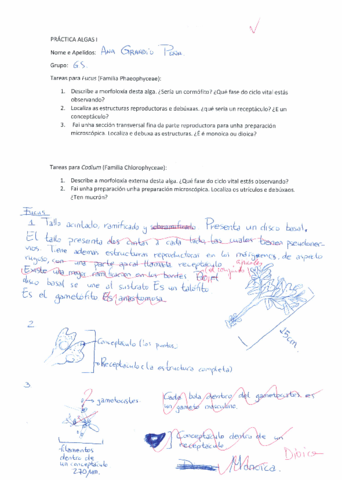 PRÁCTICA ALGAS I
Nome e Apelidos: Ana Grandío Pena
Grupo: G5
Tareas para Fucus (Familia Phaeophyceae):
1. Describe a morfoloxía desta alga. ¿Sería un cormófito? ¿Qué fase do ciclo vital estás
observando?
2. Localiza as estruturas reprodutoras e debúxaas. ¿qué sería un receptáculo? ¿E un
conceptáculo?
3. Fai unha sección transversal fina da parte reprodutora para unha preparación
microscópica. Localiza e debuxa as estruturas. ¿É é monoica ou dioica?
Tareas para Codium (Familia Chlorophyceae):
1. Describe a morfoloxía externa desta alga. ¿Qué fase do ciclo vital estás observando?
2. Fai unha preparación unha preparación microscópica. Localiza os utrículos e debúxaos.
¿Ten mucrón?
Fucus
1. Tallo acintado, ramificado y Presenta un disco basal.
El tallo presenta dos cintas a cada lado las cuales tienen pseudoner-
vios. Tiene además estructuras reproductoras en los márgenes, de aspecto
rugoso, con una parte apical llamada receptáculo
Existe una mega ramificación en los bordes. El
disco basal se une al sustrato Es un talófito
Es el gametofito Es anastomosa.
15cm
2.
Conceptáculo (los puntos)
Receptáculo (la estructura completa)
3.
gametocistes.
Cada bola dentro del gametocistes es
un gameto masculino.
Conceptáculo dentro de un
receptáculo
Elementos
dentro de
un conceptáculo
270µm.
Monoica.
Dióica